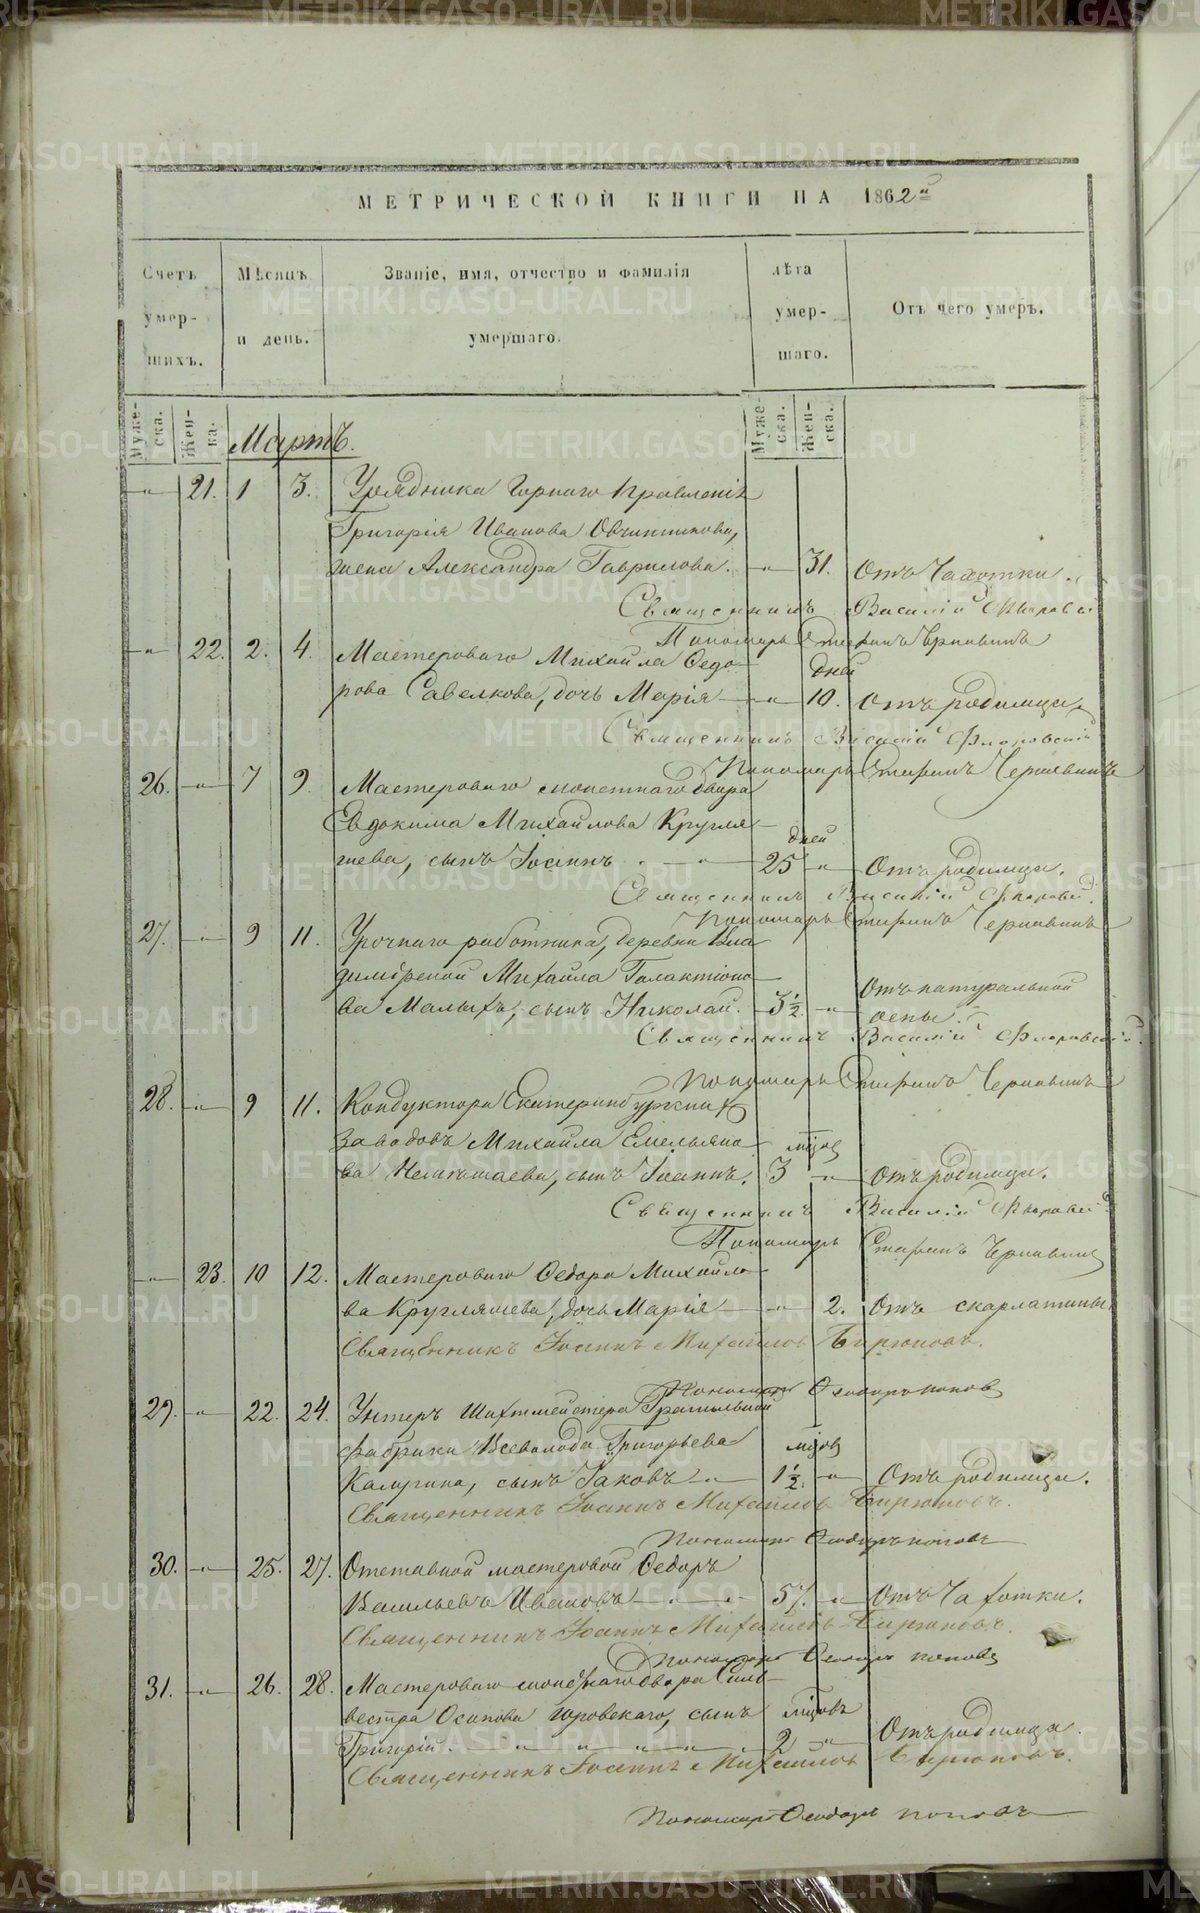 МЕТРИЧЕСКОЙ КНИГИ НА 1862й
Счетъ умер- шихъ.
Мѣсяцъ и день.
Званіе, имя, отчество и фамилія умершаго.
лѣта умер- шаго.
Отъ чего умеръ.
Муже- ска. Жен- ка. Мартъ. Муже- ска. Жен- ска.
21. 1 3. Урядника Горнаго Правленія
Григорія Иванова Овчинникова,
жена Александра Гаврилова. 31. Отъ Чахотки.
Священникъ Василій Флоровскій
Пономарь Стефанъ Чернавинъ
22. 2. 4. Мастероваго Михаила Ѳедо-
дней
рова Савелкова, дочь Марія 10. Отъ родимца.
Священникъ Василій Флоровскій
Пономарь Стефанъ Чернавинъ
26. 7 9. Мастероваго монетнаго двора
Евдокима Михайлова Кругля-
дней
шева, сынъ Іоаннъ 25 Отъ родимца.
Священникъ Василій Флоровскій
Пономарь Стефанъ Чернавинъ
27. 9 11. Урочнаго работника, деревни Вла-
димірской Михаила Галактіоно-
ва Малыхъ, сынъ Николай. 3½ Отъ натуральной
оспы.
Священникъ Василій Флоровскій
Пономарь Стефанъ Чернавинъ
28. 9 11. Кондуктора Екатеринбургскихъ
заводовъ Михаила Емельяно-
мѣсяц
ва сынъ Іоаннъ. 3 Отъ родимца.
Священникъ Василій Флоровскій
Пономарь Стефанъ Чернавинъ
23. 10 12. Мастероваго Ѳедора Михайло-
ва Кругляшева, дочь Марія 2. Отъ скарлатины
Священникъ Іоаннъ Михайловъ Бирюковъ.
Пономарь Ѳеодоръ Поповъ
29. 22. 24. Унтеръ Шихтмейстера Гранильной
фабрики Всеволода Григорьева
мѣсяц
Калугина, сынъ Іаковъ 1½. Отъ родимца.
Священникъ Іоаннъ Михайловъ Бирюковъ.
Пономарь Ѳеодоръ Поповъ
30. 25. 27. Отставной мастеровой Ѳедоръ
Васильевъ Ивановъ 57. Отъ Чахотки.
Священникъ Іоаннъ Михайловъ Бирюковъ.
Пономарь Ѳеодоръ Поповъ
31. 26. 28. Мастероваго монетнаго двора Силь-
вестра Осипова сынъ
Григорій 2 Отъ родимца.
Священникъ Іоаннъ Михайловъ Бирюковъ.
Пономарь Ѳеодоръ Поповъ
METRIKI.GASO-URAL.RU